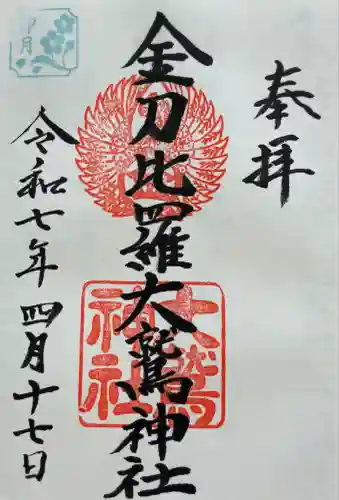 奉拝
金刀比羅大鷲神社
大鷲神社
卯月
令和七年四月十七日